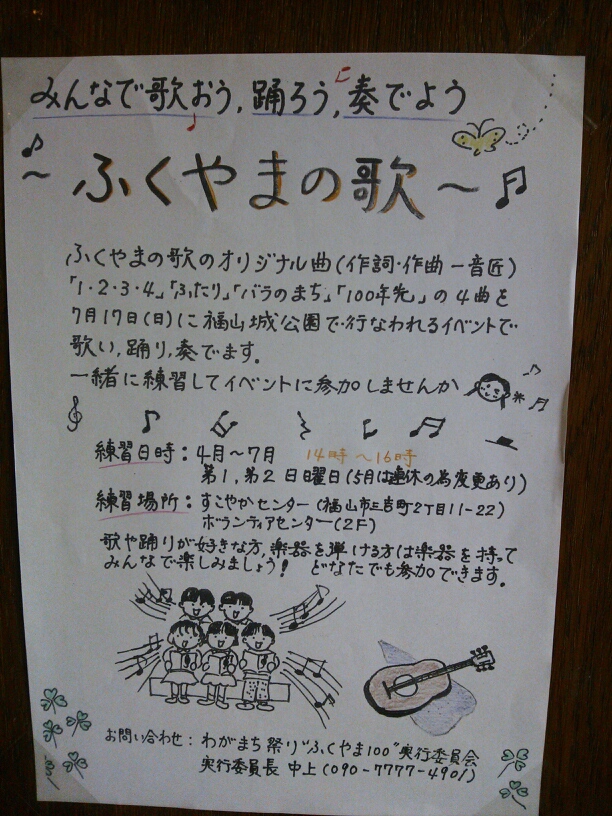 みんなで歌おう,踊ろう,奏でよう
～ふくやまの歌～
ふくやまの歌のオリジナル曲(作詞・作曲 一音匠)
「1・2・3・4」「ふたり」「バラのまち」「100年先」の4曲を
7月17日(日)に福山城公園で行なわれるイベントで
歌い,踊り,奏でます。
一緒に練習してイベントに参加しませんか
練習日時:4月～7月 14時～16時
第1,第2日曜日(5月は連休の為変更あり)
練習場所:すこやかセンター(福山市三吉町2丁目11-22)
ボランティアセンター(2F)
歌や踊りが好きな方,楽器を弾ける方は楽器を持って
みんなで楽しみましょう! どなたでも参加できます。
お問い合わせ:わがまち祭り"ふくやま100"実行委員会
実行委員長 中上(090-7777-4901)